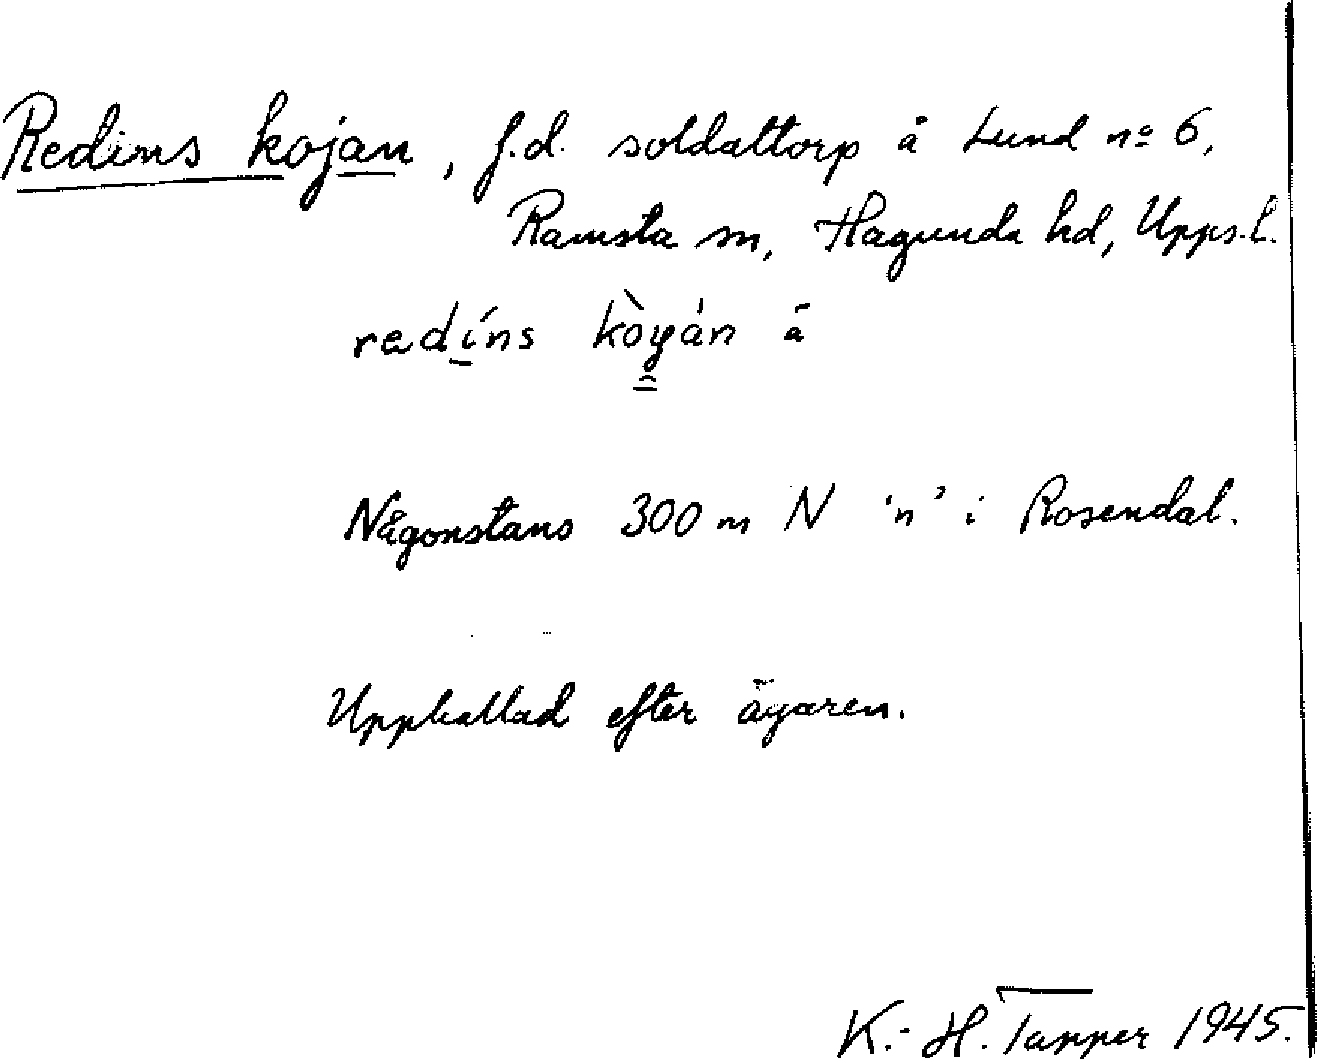 Redins kojan, f.d. soldattorp å Lund nº 6,
Ramsta sn, Hagunda hd, Upps.l.
redíns kòyán å
Någonstans 300 m N 'n' i Rosendal.
Uppkallad efter ägaren.
K.-H. Tapper 1945.